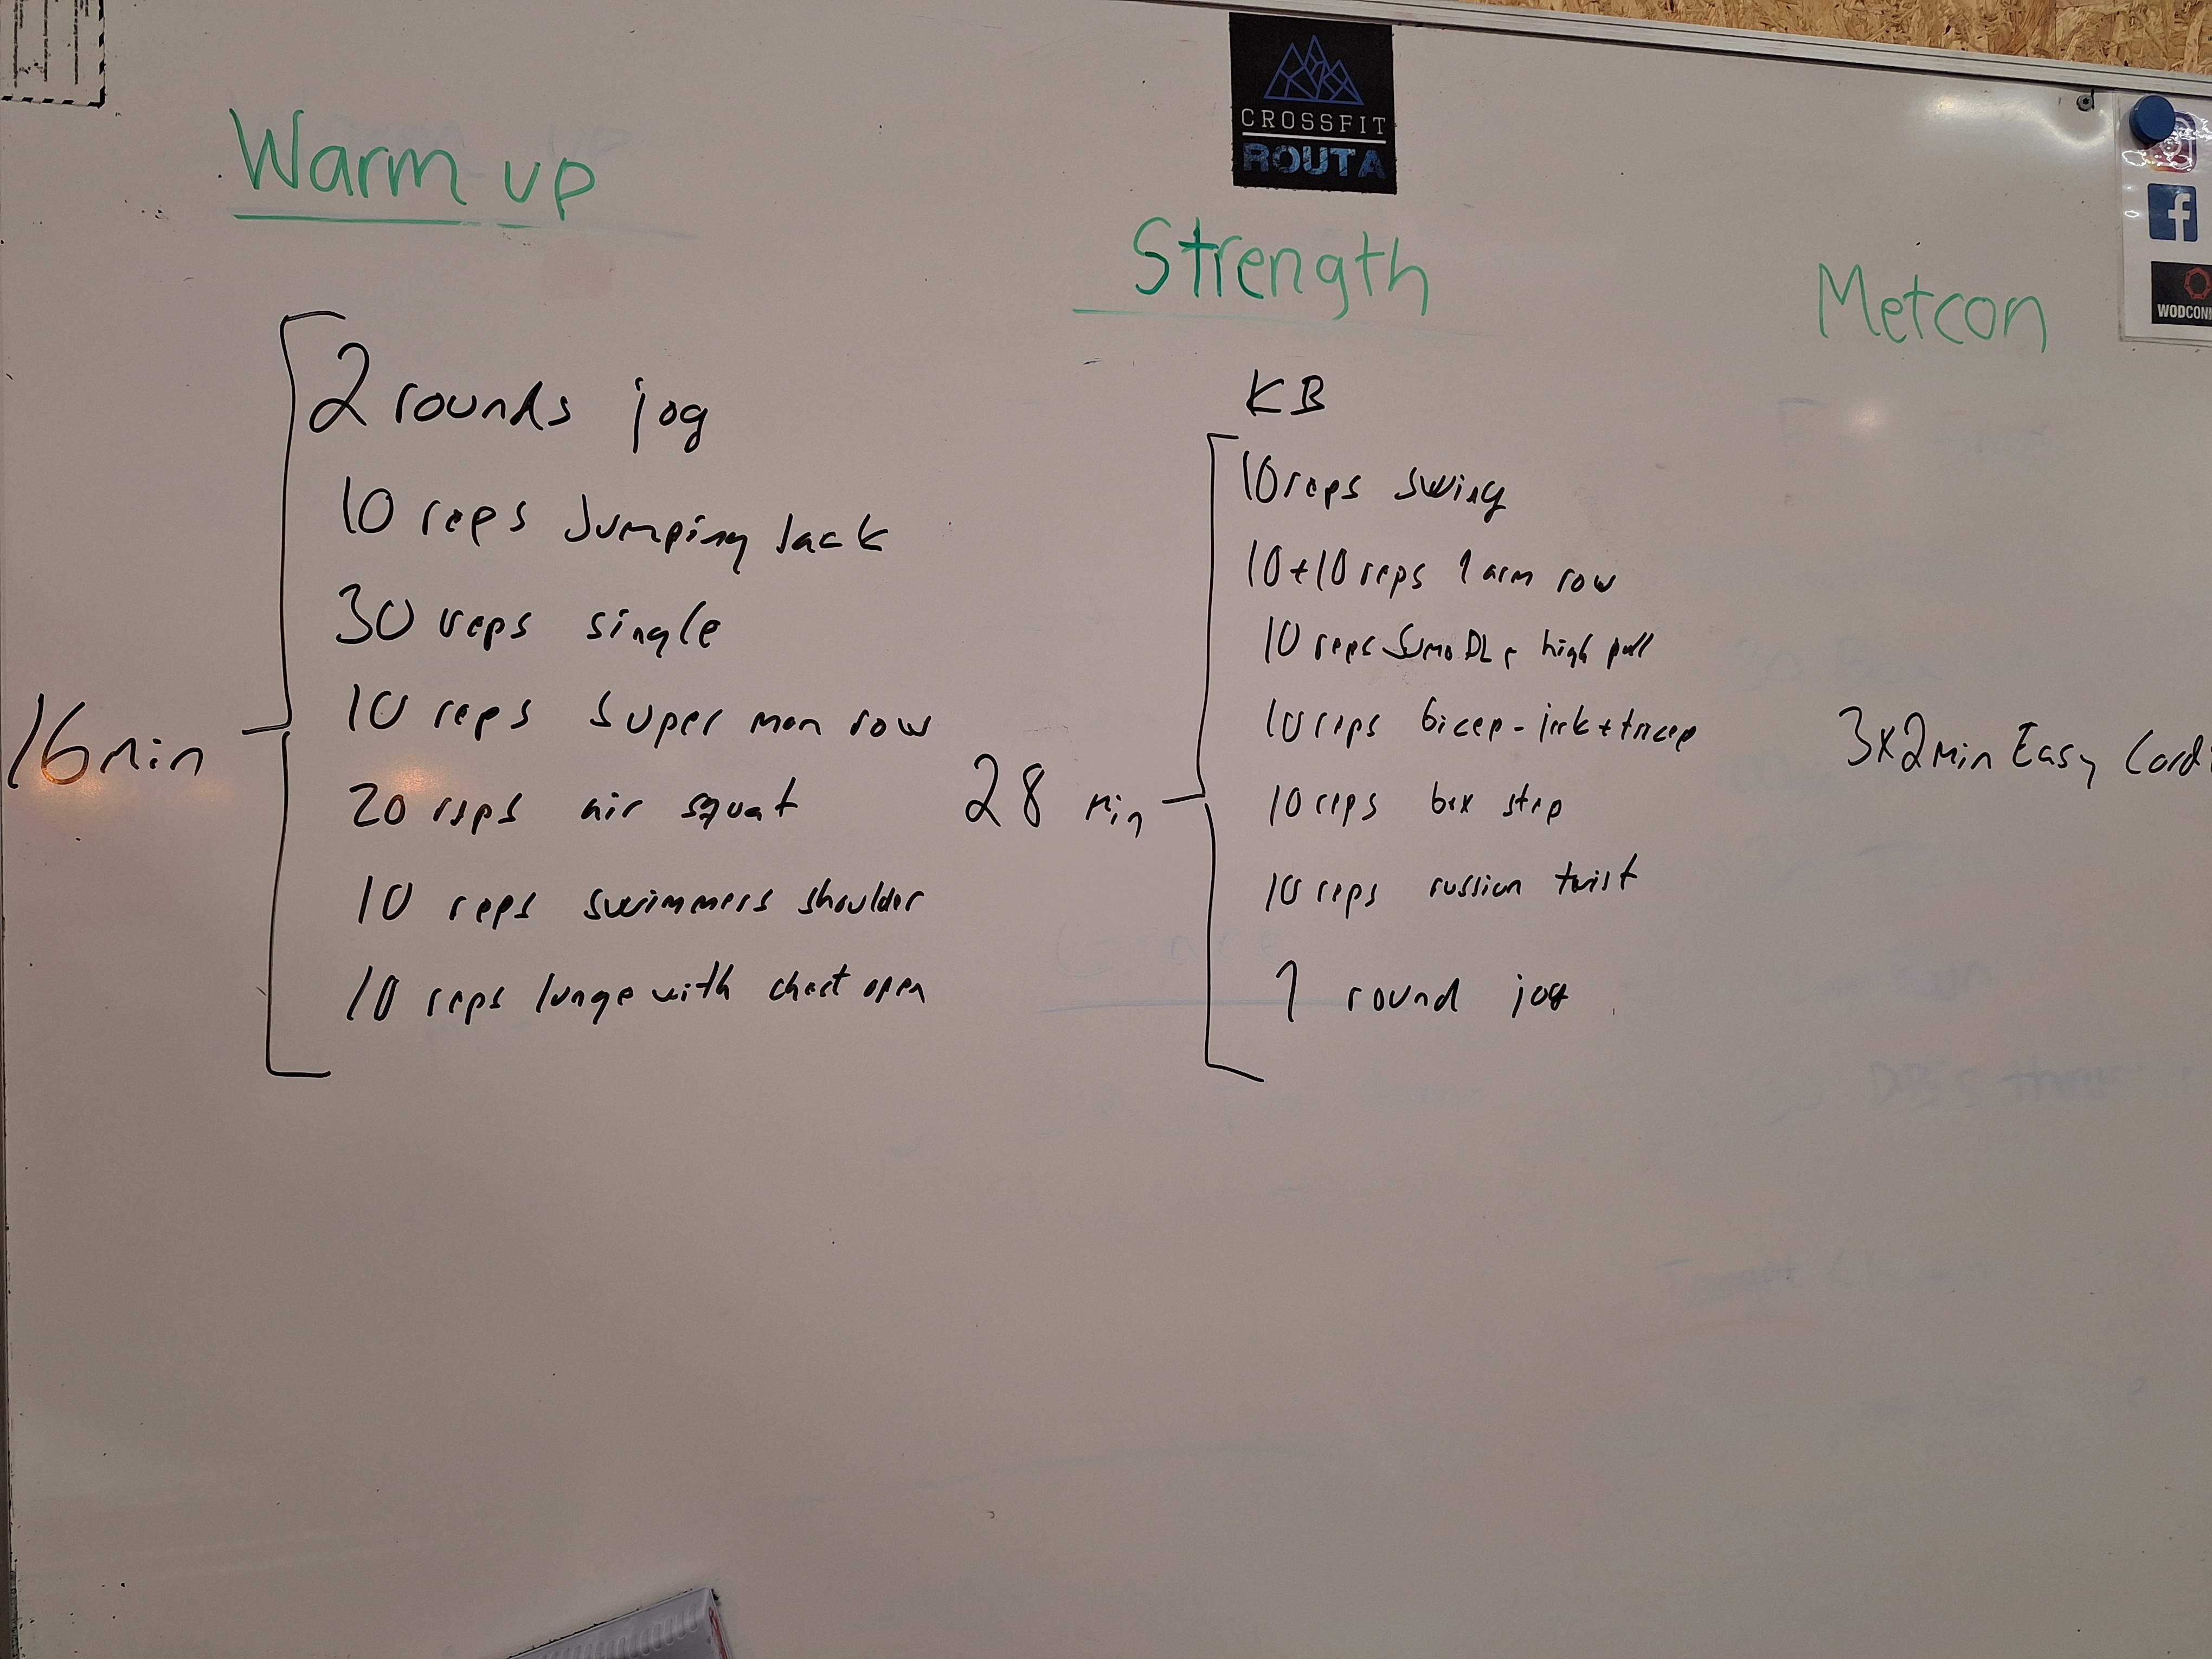 Warm up
16 min
2 rounds jog
10 reps Jumping Jack
30 reps single
10 reps super man row
20 reps air squat
10 reps swimmers shoulder
10 reps lunge with chest open
CROSSFIT
ROUTA
Strength
28 min
KB
10 reps swing
10+10 reps 1 arm row
10 reps Sumo DL high pull
10 reps bicep-jerk+tricep
10 reps box step
10 reps russian twist
1 round jog
Metcon
3x2min Easy Card
WODCONN